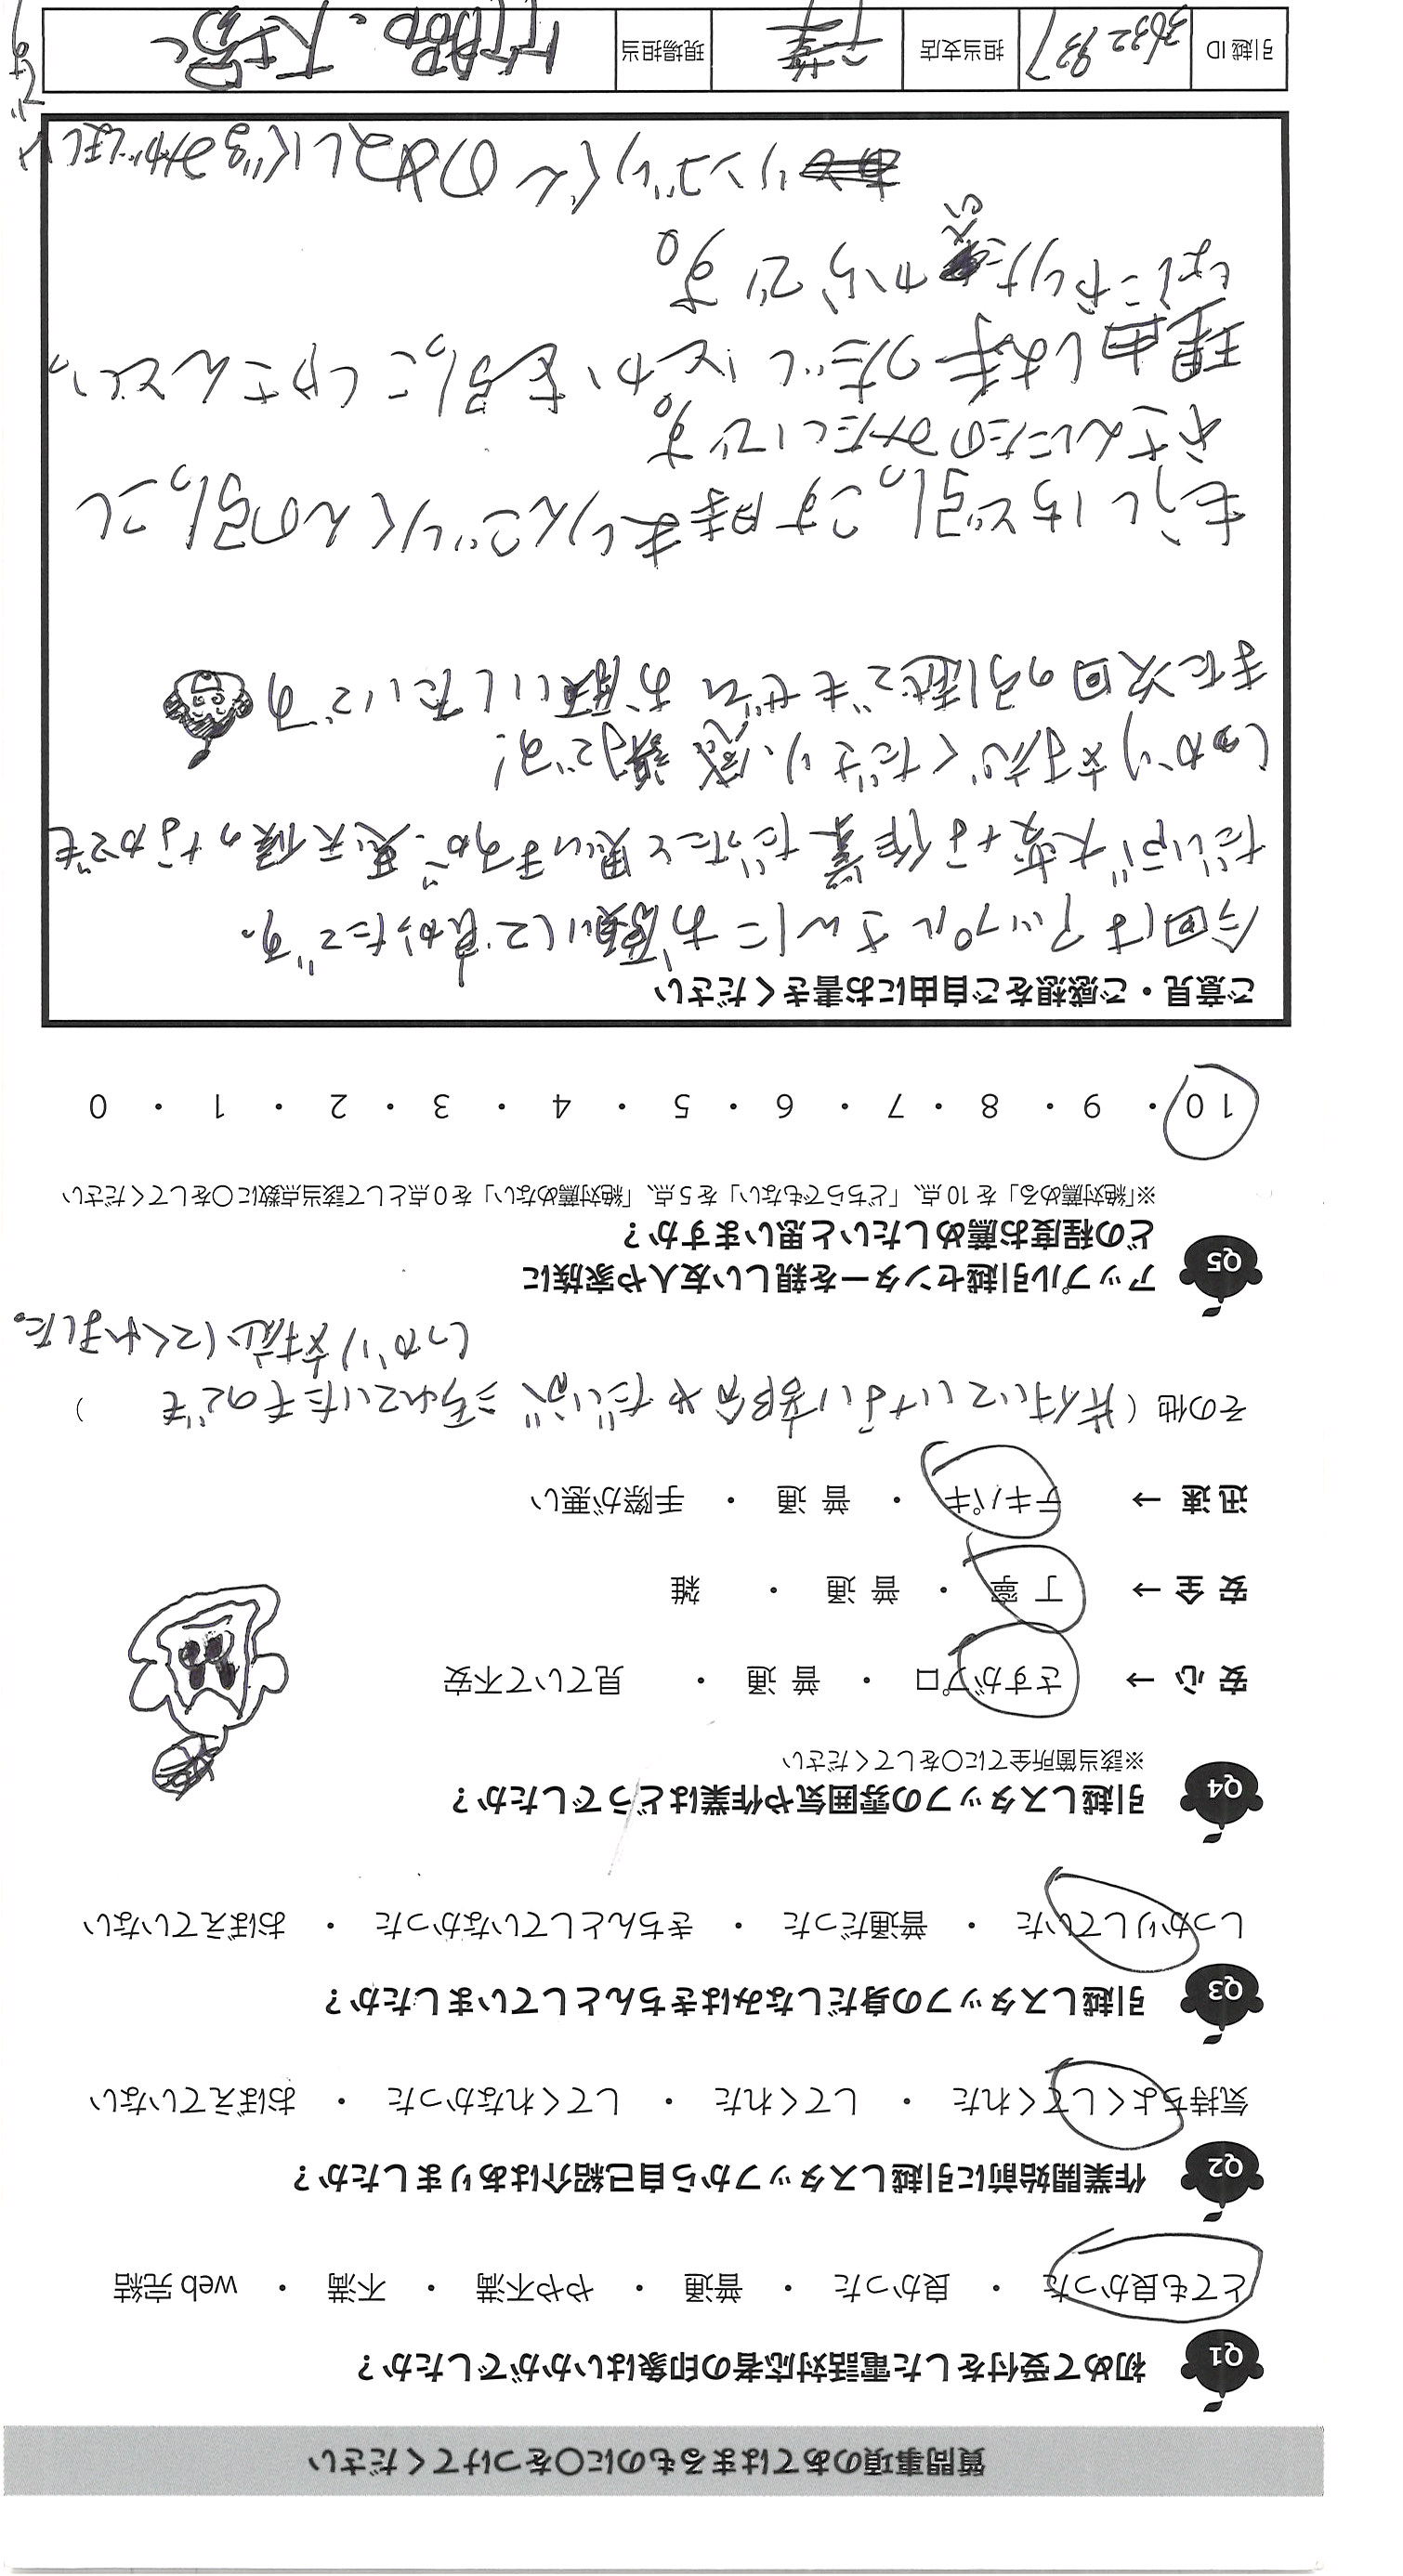 質問事項のあてはまるものに〇をつけてください
Q1 初めて受付をした電話対応者の印象はいかがでしたか？
とても良かった ・ 良かった ・ 普通 ・ やや不満 ・ 不満 ・ web 完結
Q2 作業開始前に引越しスタッフから自己紹介はありましたか？
気持ちよくしてくれた ・ してくれた ・ してくれなかった ・ おぼえていない
Q3 引越しスタッフの身だしなみはきちんとしていましたか？
しっかりしていた ・ 普通だった ・ きちんとしていなかった ・ おぼえていない
Q4 引越しスタッフの雰囲気や作業はどうでしたか？
※該当箇所全てに〇をしてください
安 心 → さすがプロ ・ 普 通 ・ 見ていて不安
安 全 → 丁 寧 ・ 普 通 ・ 雑
迅 速 → テキパキ ・ 普 通 ・ 手際が悪い
その他（片付いていない部分やだいぶ汚れていたものでも ）
しっかり対応してくれました。
Q5 アップル引越センターを親しい友人や家族に
どの程度お薦めしたいと思いますか？
※「絶対薦める」を 10 点、「どちらでもない」を 5 点、「絶対薦めない」を 0 点として該当点数に〇をしてください
10 ・ 9 ・ 8 ・ 7 ・ 6 ・ 5 ・ 4 ・ 3 ・ 2 ・ 1 ・ 0
ご意見・ご感想をご自由にお書きください
今回はアップルさんにお願いして良かったです。
だいぶ大変な作業だったと思いますが、悪天候のなかでも
しっかり対応くださり、感謝です!
また次回の引越でもぜひお願いしたいです
もういちど引っこす時まりんごりくんの引っこし
やさんにたのみたいです。
理由は手つだいとかを引っこしやさんといっ
しょにやりたいからです。
リンゴリくんのぬいぐるみがほしい
です
引越 ID 3632937 担当支店 千葉 現場担当